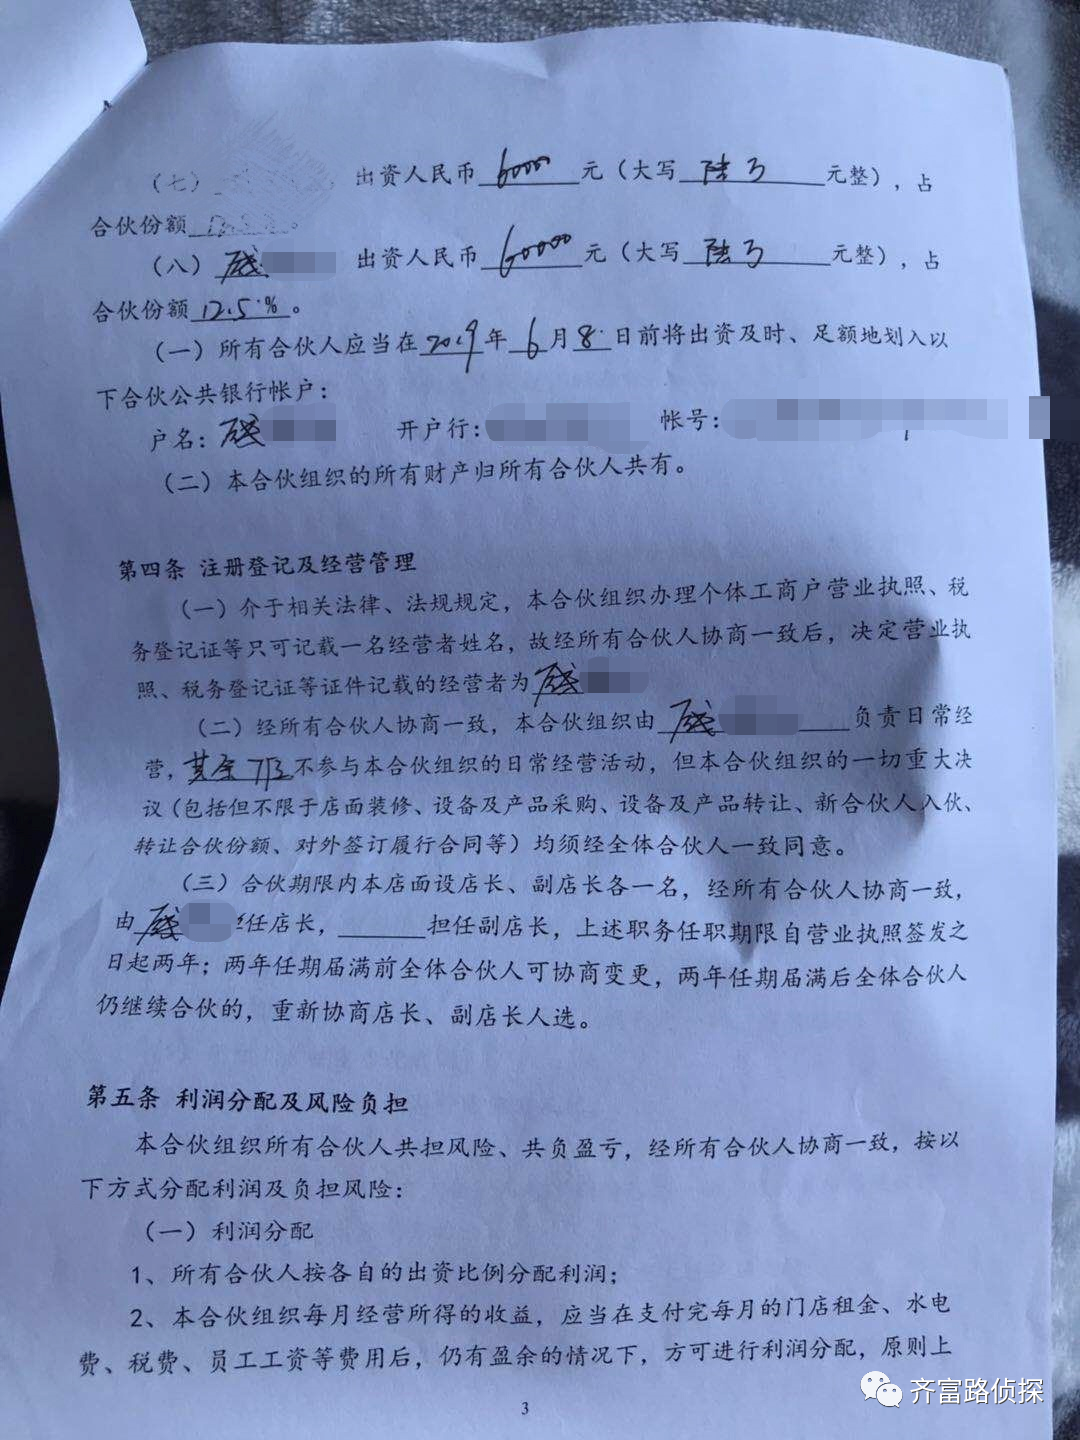 （七） 出资人民币 6000 元（大写 陆万 元整），占
合伙份额 。
（八） 出资人民币 60000 元（大写 陆万 元整），占
合伙份额 12.5% 。
（一）所有合伙人应当在 2019 年 6 月 8 日前将出资及时、足额地划入以
下合伙公共银行帐户：
户名： 开户行： 帐号：
（二）本合伙组织的所有财产归所有合伙人共有。
第四条 注册登记及经营管理
（一）介于相关法律、法规规定，本合伙组织办理个体工商户营业执照、税
务登记证等只可记载一名经营者姓名，故经所有合伙人协商一致后，决定营业执
照、税务登记证等证件记载的经营者为
（二）经所有合伙人协商一致，本合伙组织由 负责日常经
营， 不参与本合伙组织的日常经营活动，但本合伙组织的一切重大决
议（包括但不限于店面装修、设备及产品采购、设备及产品转让、新合伙人入伙、
转让合伙份额、对外签订履行合同等）均须经全体合伙人一致同意。
（三）合伙期限内本店面设店长、副店长各一名，经所有合伙人协商一致，
由 任店长， 担任副店长，上述职务任职期限自营业执照签发之
日起两年；两年任期届满前全体合伙人可协商变更，两年任期届满后全体合伙人
仍继续合伙的，重新协商店长、副店长人选。
第五条 利润分配及风险负担
本合伙组织所有合伙人共担风险、共负盈亏，经所有合伙人协商一致，按以
下方式分配利润及负担风险：
（一）利润分配
1、所有合伙人按各自的出资比例分配利润；
2、本合伙组织每月经营所得的收益，应当在支付完每月的门店租金、水电
费、税费、员工工资等费用后，仍有盈余的情况下，方可进行利润分配，原则上
3
齐富路侦探